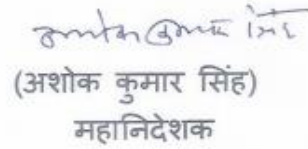 अशोक कुमार सिंह
(अशोक कुमार सिंह)
महानिदेशक